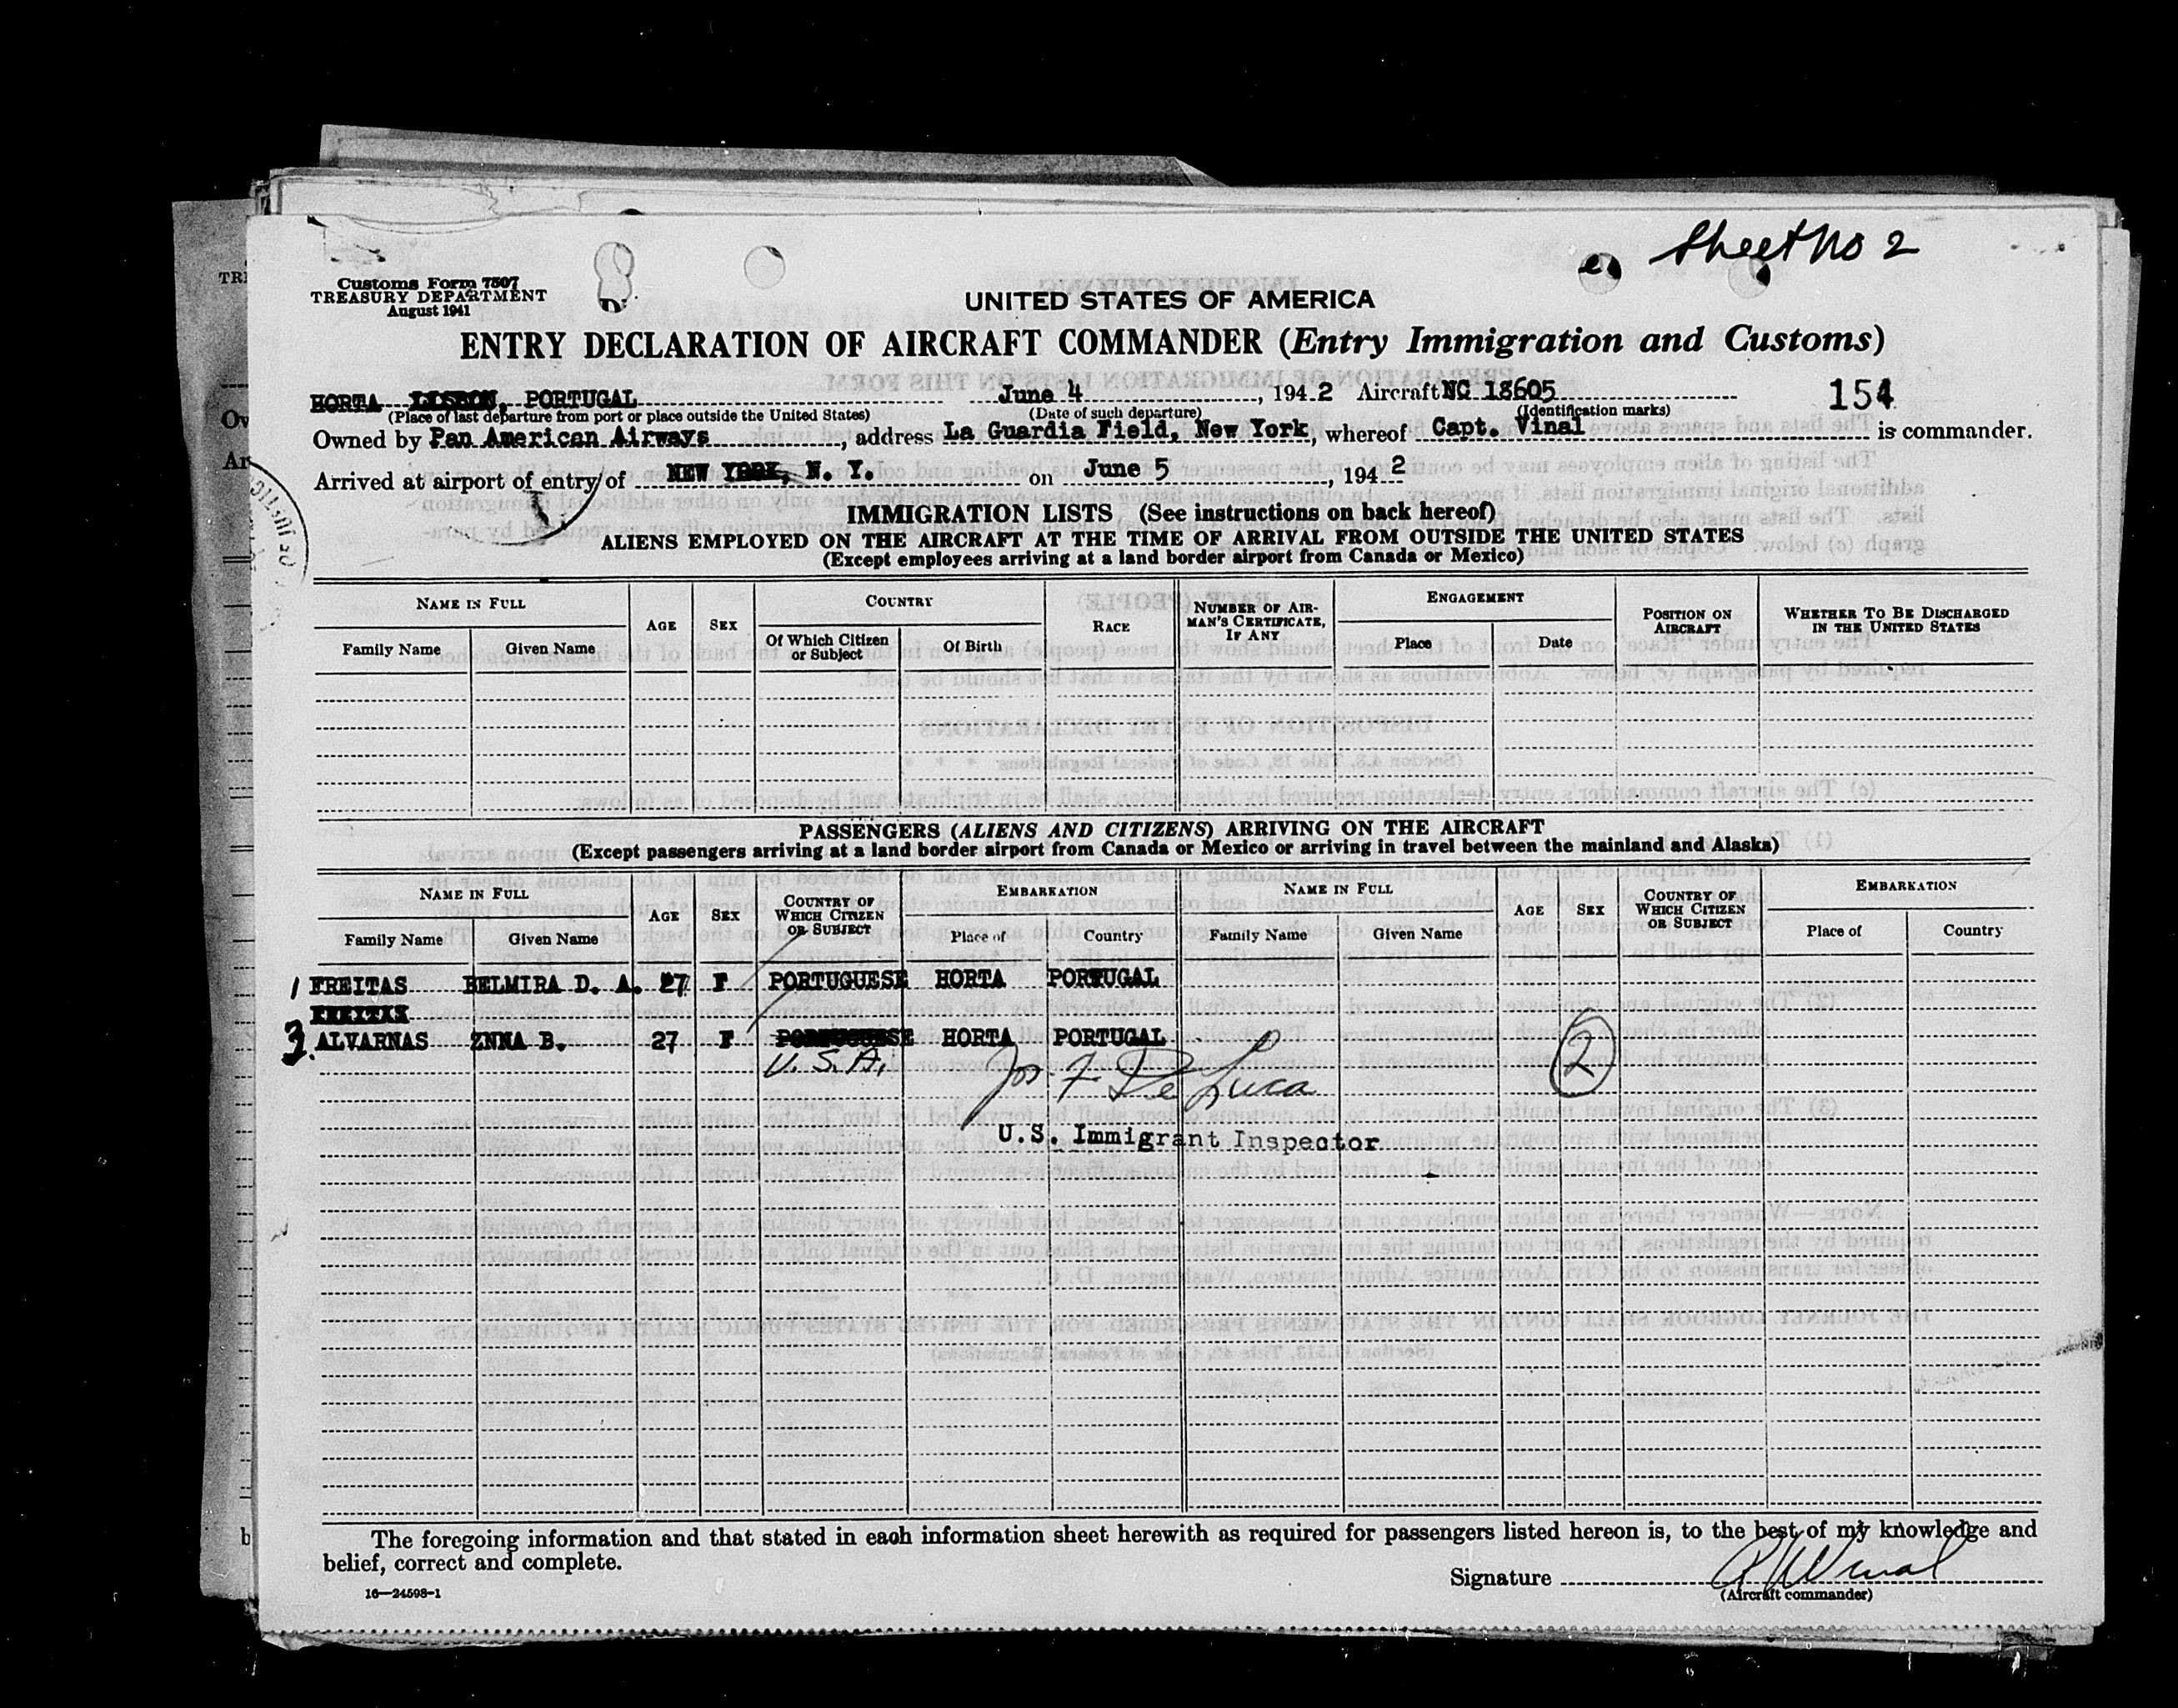 Sheet No 2
Customs Form 7507
TREASURY DEPARTMENT
August 1941
UNITED STATES OF AMERICA
ENTRY DECLARATION OF AIRCRAFT COMMANDER (Entry Immigration and Customs)
HORTA LISBON, PORTUGAL June 4, 1942 Aircraft NC 18605 154
(Place of last departure from port or place outside the United States) (Date of such departure) (Identification marks)
Owned by Pan American Airways, address La Guardia Field, New York, whereof Capt. Vinal is commander.
Arrived at airport of entry of NEW YORK, N. Y. on June 5, 1942
IMMIGRATION LISTS (See instructions on back hereof)
ALIENS EMPLOYED ON THE AIRCRAFT AT THE TIME OF ARRIVAL FROM OUTSIDE THE UNITED STATES
(Except employees arriving at a land border airport from Canada or Mexico)
NAME IN FULL AGE SEX COUNTRY RACE NUMBER OF AIRMAN'S CERTIFICATE, IF ANY ENGAGEMENT POSITION ON AIRCRAFT WHETHER TO BE DISCHARGED IN THE UNITED STATES
Family Name Given Name Of Which Citizen or Subject Of Birth Place Date
PASSENGERS (ALIENS AND CITIZENS) ARRIVING ON THE AIRCRAFT
(Except passengers arriving at a land border airport from Canada or Mexico or arriving in travel between the mainland and Alaska)
NAME IN FULL AGE SEX COUNTRY OF WHICH CITIZEN OR SUBJECT EMBARKATION NAME IN FULL AGE SEX COUNTRY OF WHICH CITIZEN OR SUBJECT EMBARKATION
Family Name Given Name Place of Country Family Name Given Name Place of Country
1 FREITAS BELMIRA D. A. 27 F PORTUGUESE HORTA PORTUGAL
ALVARNAS ZNNA B. 27 F PORTUGUESE HORTA PORTUGAL
U.S.A. Jos F De Luca 2
U.S. Immigrant Inspector
The foregoing information and that stated in each information sheet herewith as required for passengers listed hereon is, to the best of my knowledge and
belief, correct and complete.
Signature
(Aircraft commander)
16—24598-1